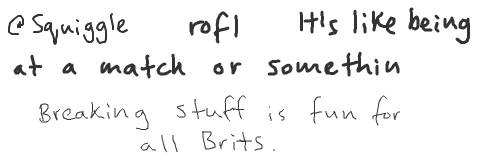 @Squiggle rofl It's like being
at a match or somethin
Breaking stuff is fun for
all Brits.